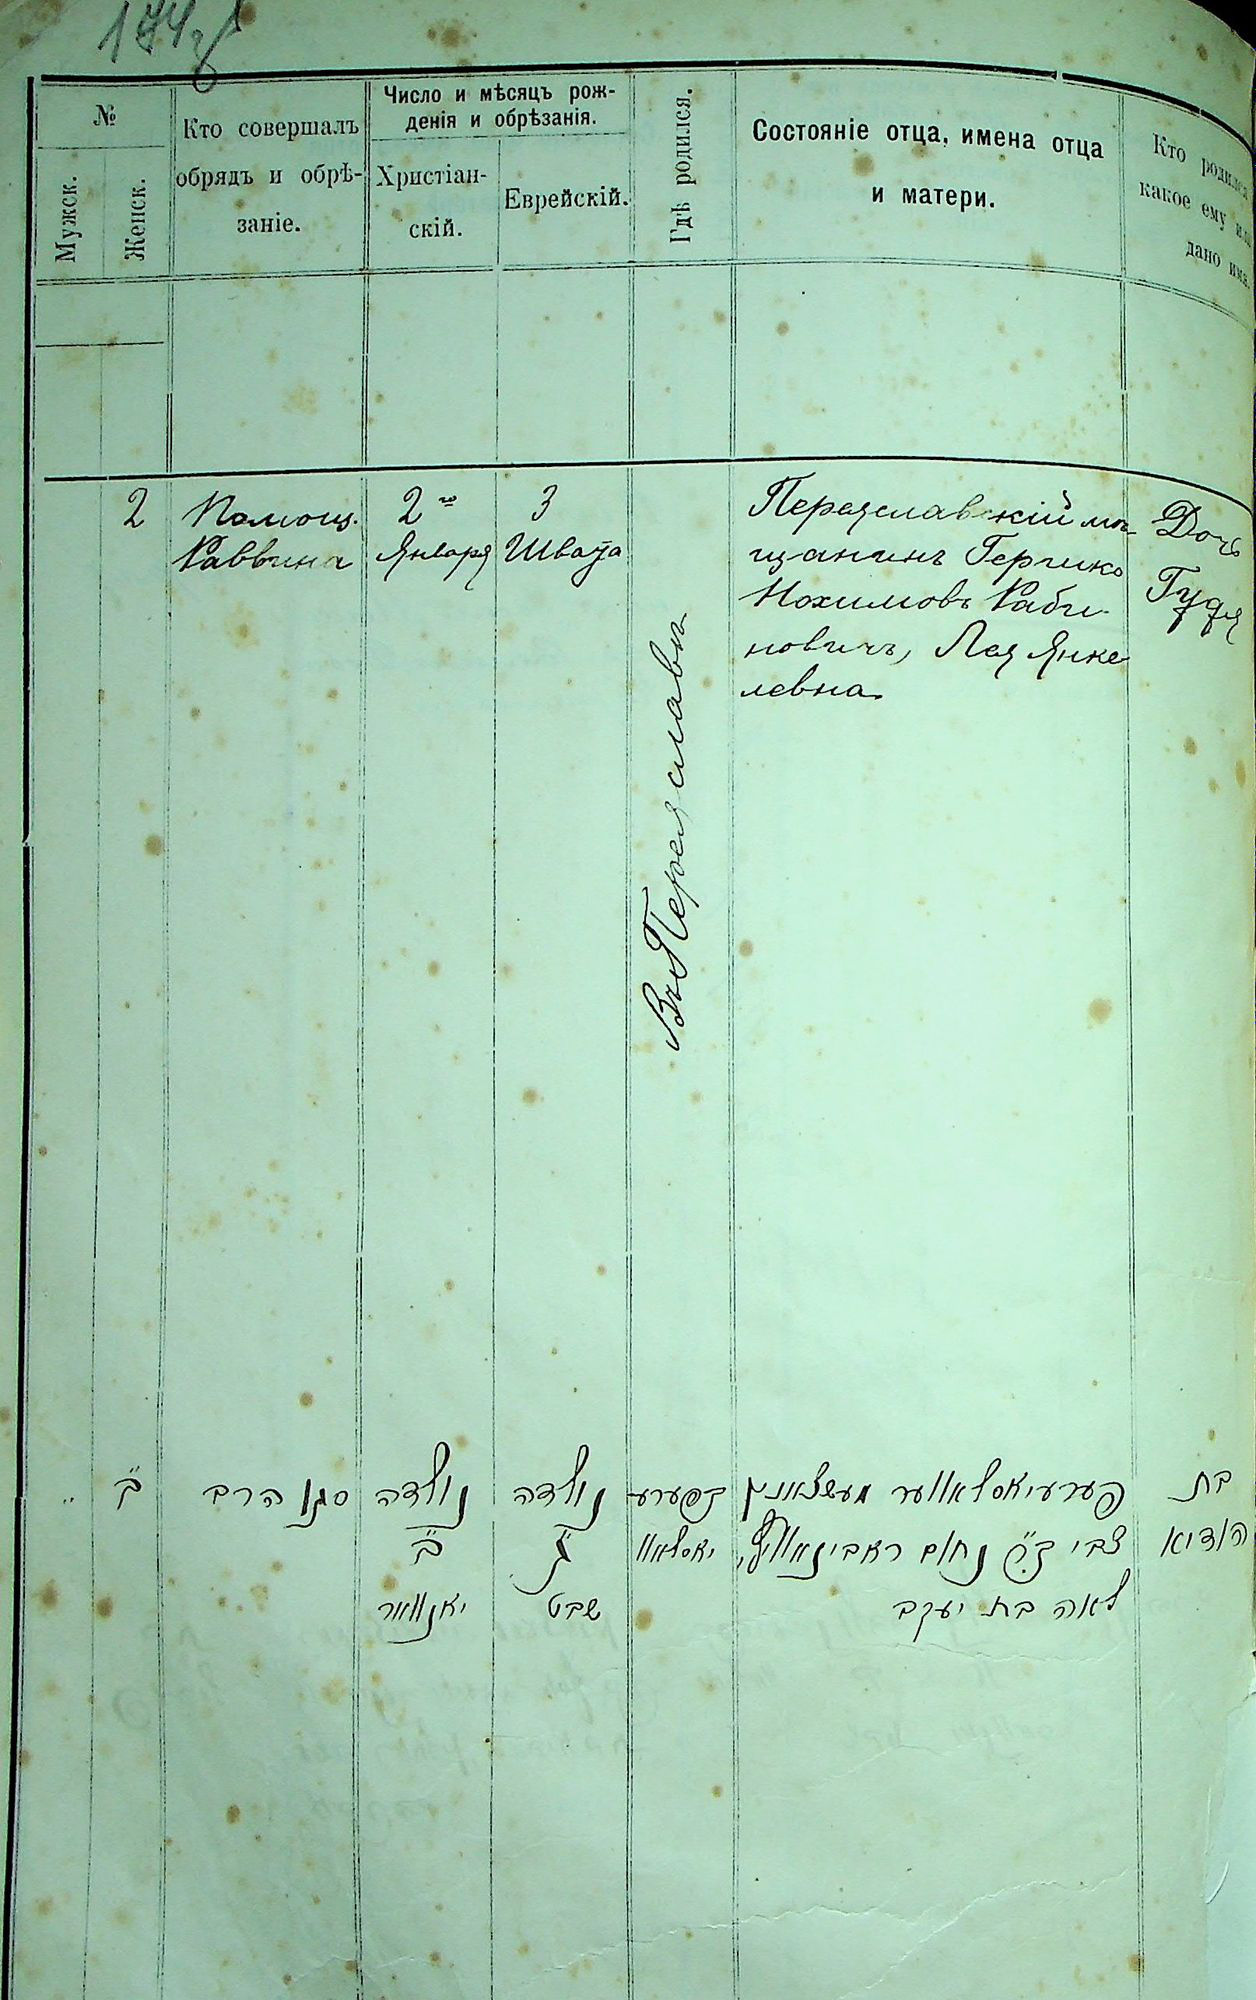 №
Мужск.
Женск.
Кто совершалъ
обрядъ и обрѣ-
заніе.
Число и мѣсяцъ рож-
денія и обрѣзанія.
Христіан-
скій.
Еврейскій.
Гдѣ родился.
Состояніе отца, имена отца
и матери.
Кто родился
какое ему или
дано имя.
2
Помощ.
Раввина
2го
Января
3
Швата
Въ Переяславѣ
Переяславскій мѣ-
щанинъ Гершко
Нохимовъ Раби-
новичъ, Лея Янке
левна.
Дочь
Гудя
ב
סגן הרב
נולדה
ב
יאנוואר
נולדה
ג
שבט
בפערע
יאסלאוו
פערעיאסלאווער מעשצאנין
צבי ב"ר נחום ראבינאוויץ,
לאה בת יעקב
בת
הודיא